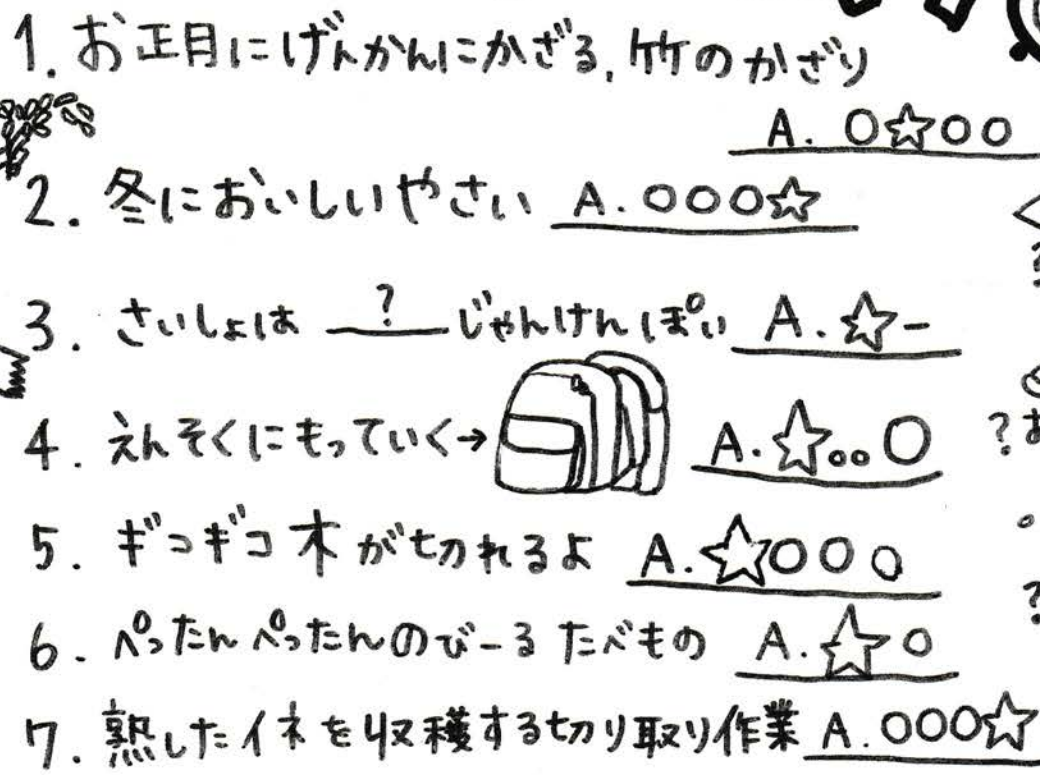 1. お正月にげんかんにかざる, 竹のかざり
A. ○☆○○
2. 冬においしいやさい A. ○○○☆
3. さいしょは ? じゃんけんぽい A. ☆-
4. えんそくにもっていく→ A. ☆○○○
?あ
5. ギコギコ木が切れるよ A. ☆○○○
6. ぺったんぺったんのびーるたべもの A. ☆○
7. 熟したイネを収穫する切り取り作業 A. ○○○☆